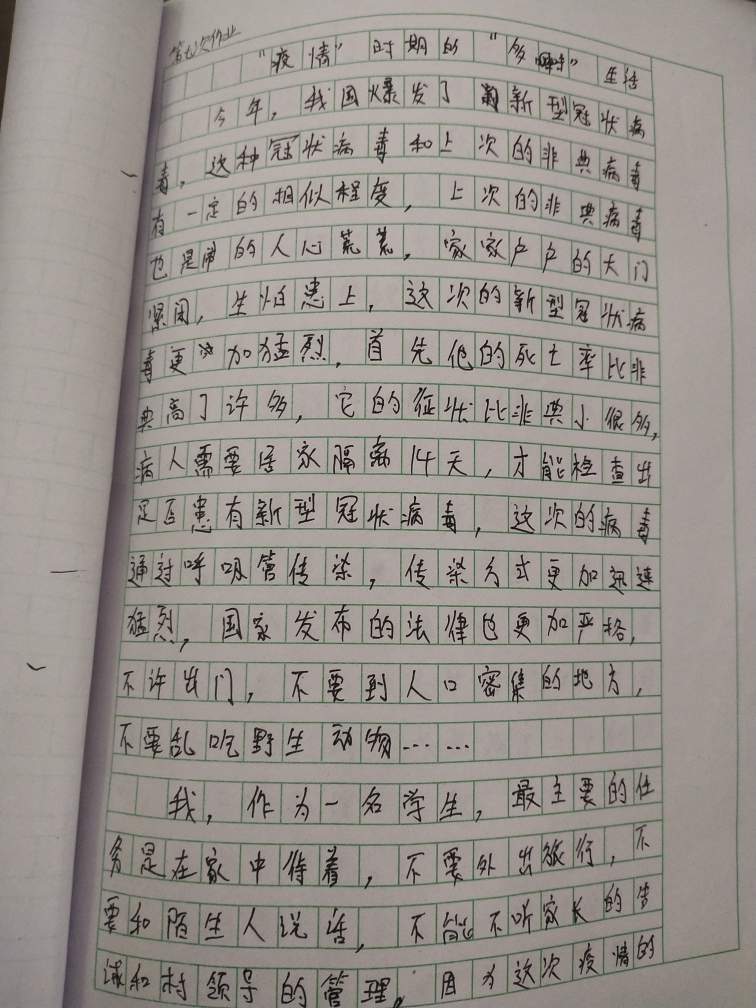 第七次作业
"疫情"时期的"多"生活
今年，我国爆发了新型冠状病
毒，这种冠状病毒和上次的非典病毒
有一定的相似程度，上次的非典病毒
也是闹的人心荒荒，家家户户的大门
紧闭，生怕患上，这次的新型冠状病
毒更加猛烈，首先他的死亡率比非
典高了许多，它的征状比非典小很多，
病人需要居家隔离14天，才能检查出
是否患有新型冠状病毒，这次的病毒
通过呼吸管传染，传染方式更加迅速
猛烈，国家发布的法律也更加严格，
不许出门，不要到人口密集的地方，
不要乱吃野生动物……
我，作为一名学生，最主要的任
务是在家中待着，不要外出旅行，不
要和陌生人说话，不能不听家长的告
诫和村领导的管理。因为这次疫情的